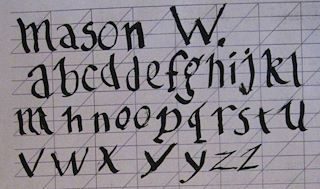 mason W.
abcddefghijkl
mnnoopqrstu
vwx yyzz